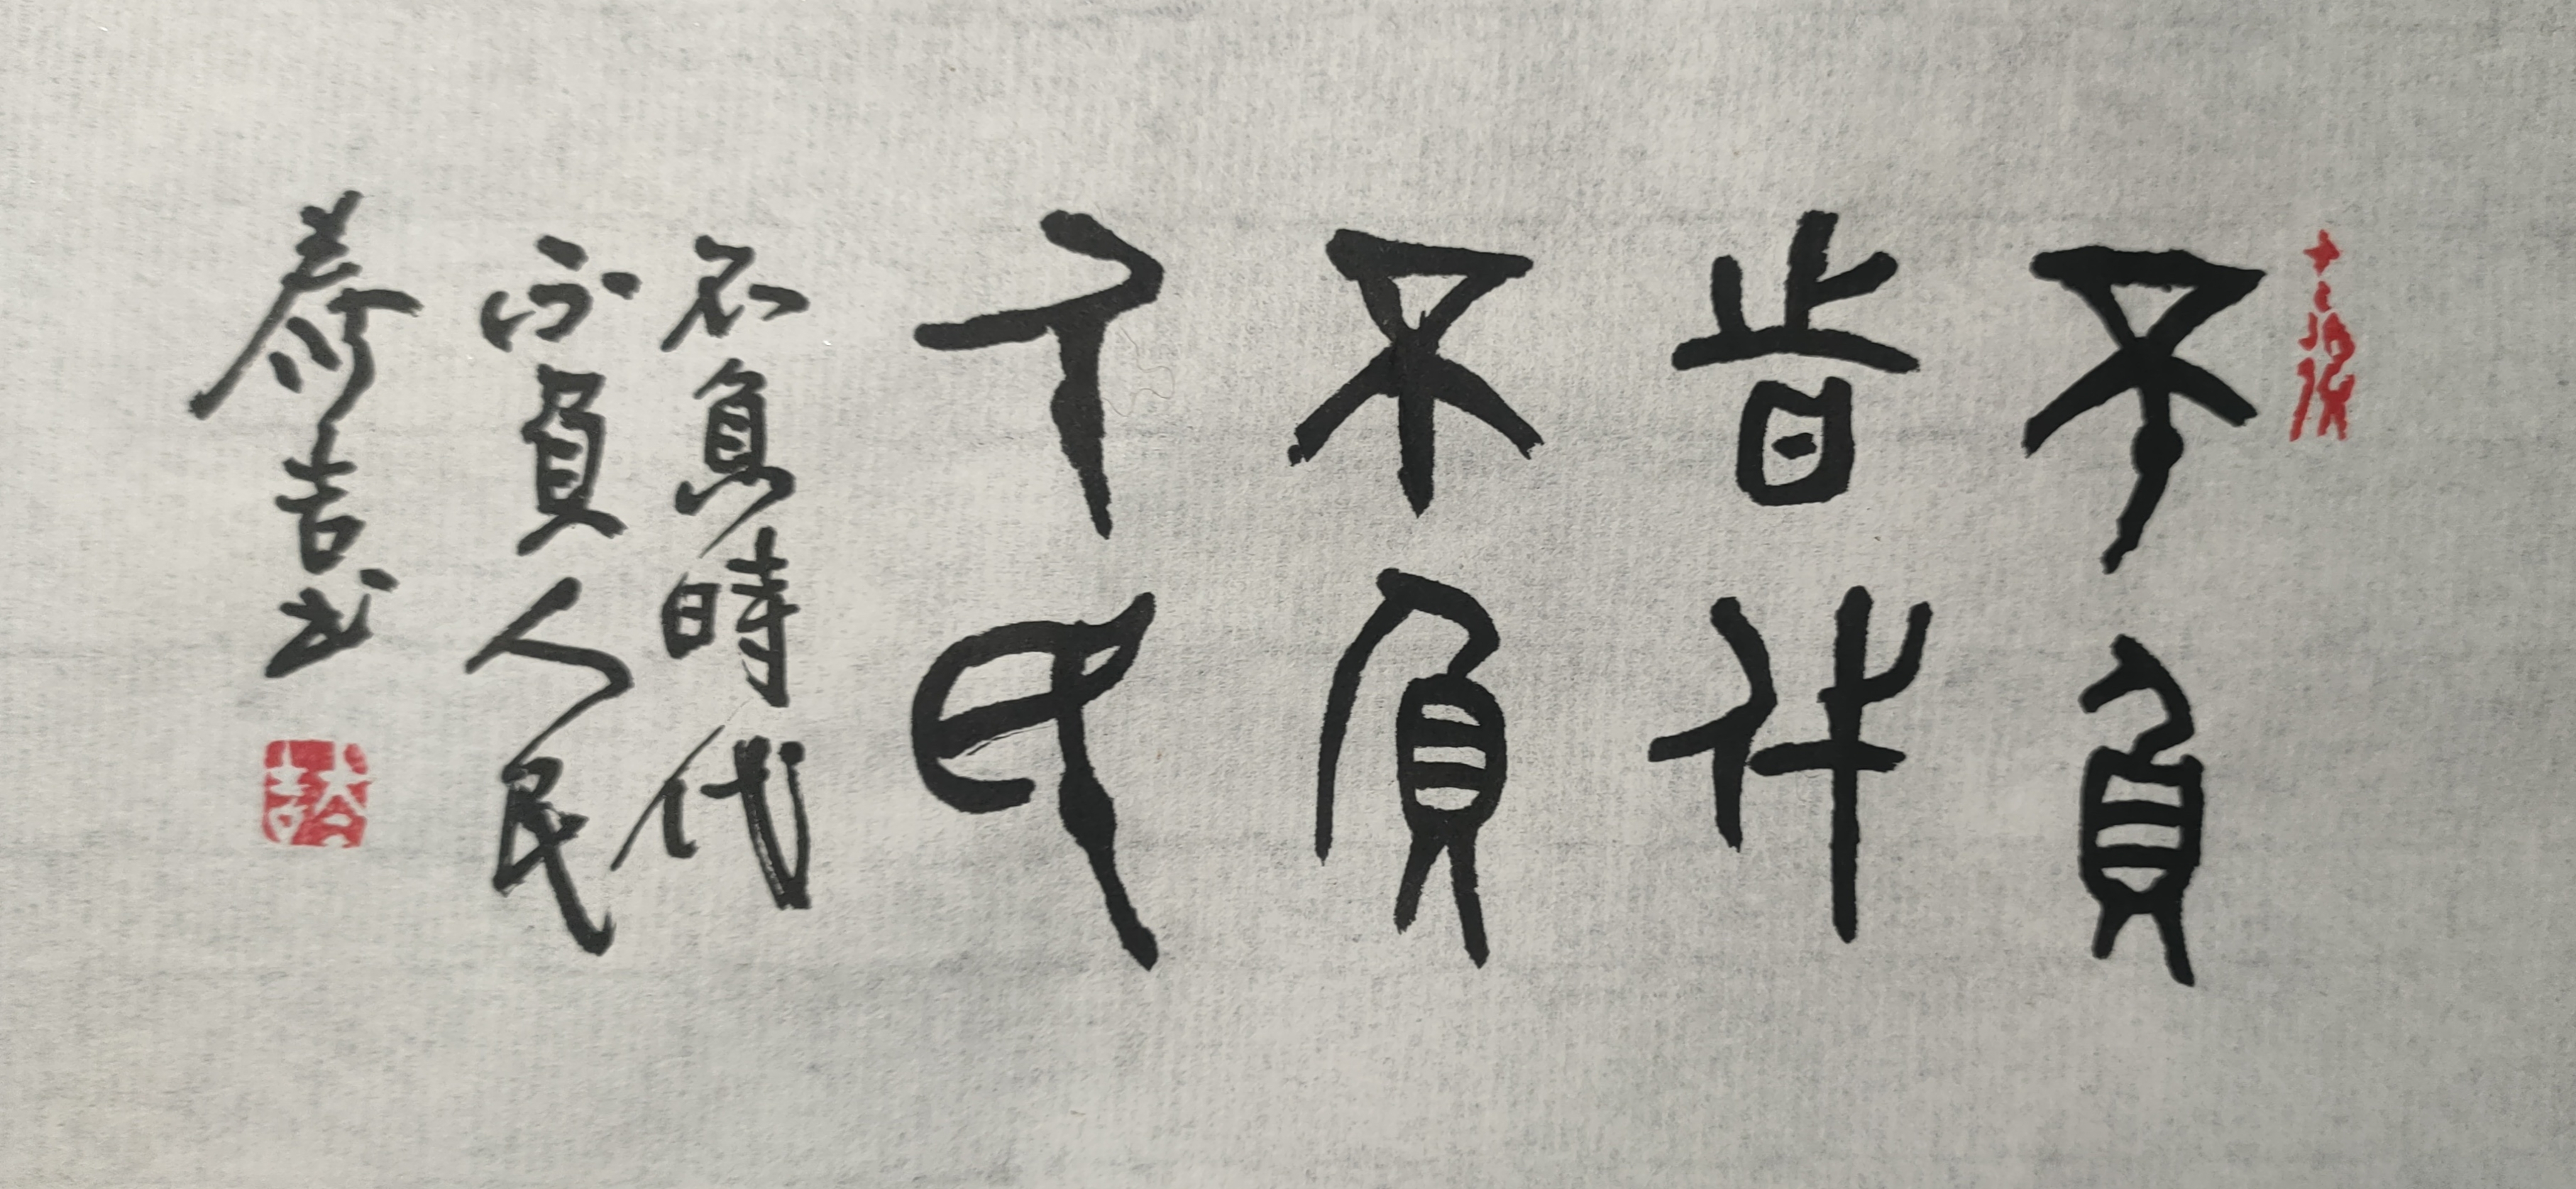 不負
時代
不負
人民
不負時代
不負人民
泰吉书
泰吉